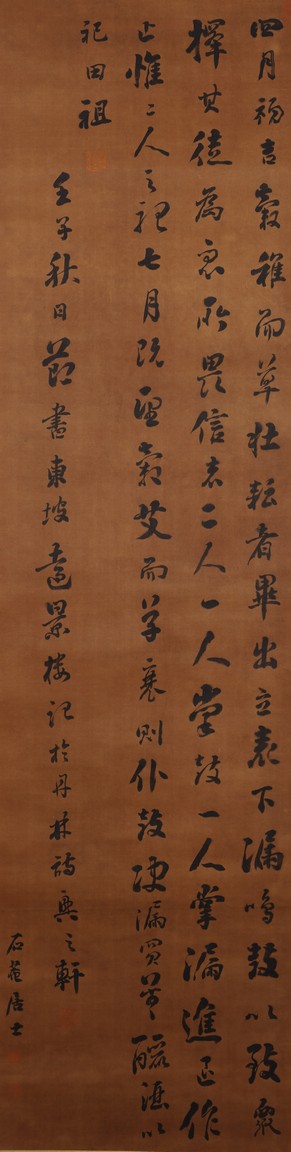 四月初吉穀稚而草壯耘者畢出立表下漏鳴鼓以致衆
擇其徒為衆所畏信者二人一人掌鼓一人掌漏進退作
止惟二人之聽七月既望穀艾而草衰則仆鼓決漏買羊醴酒以
祀田祖
壬子秋日節書東坡遠景樓記於丹林詩興之軒
石菴居士